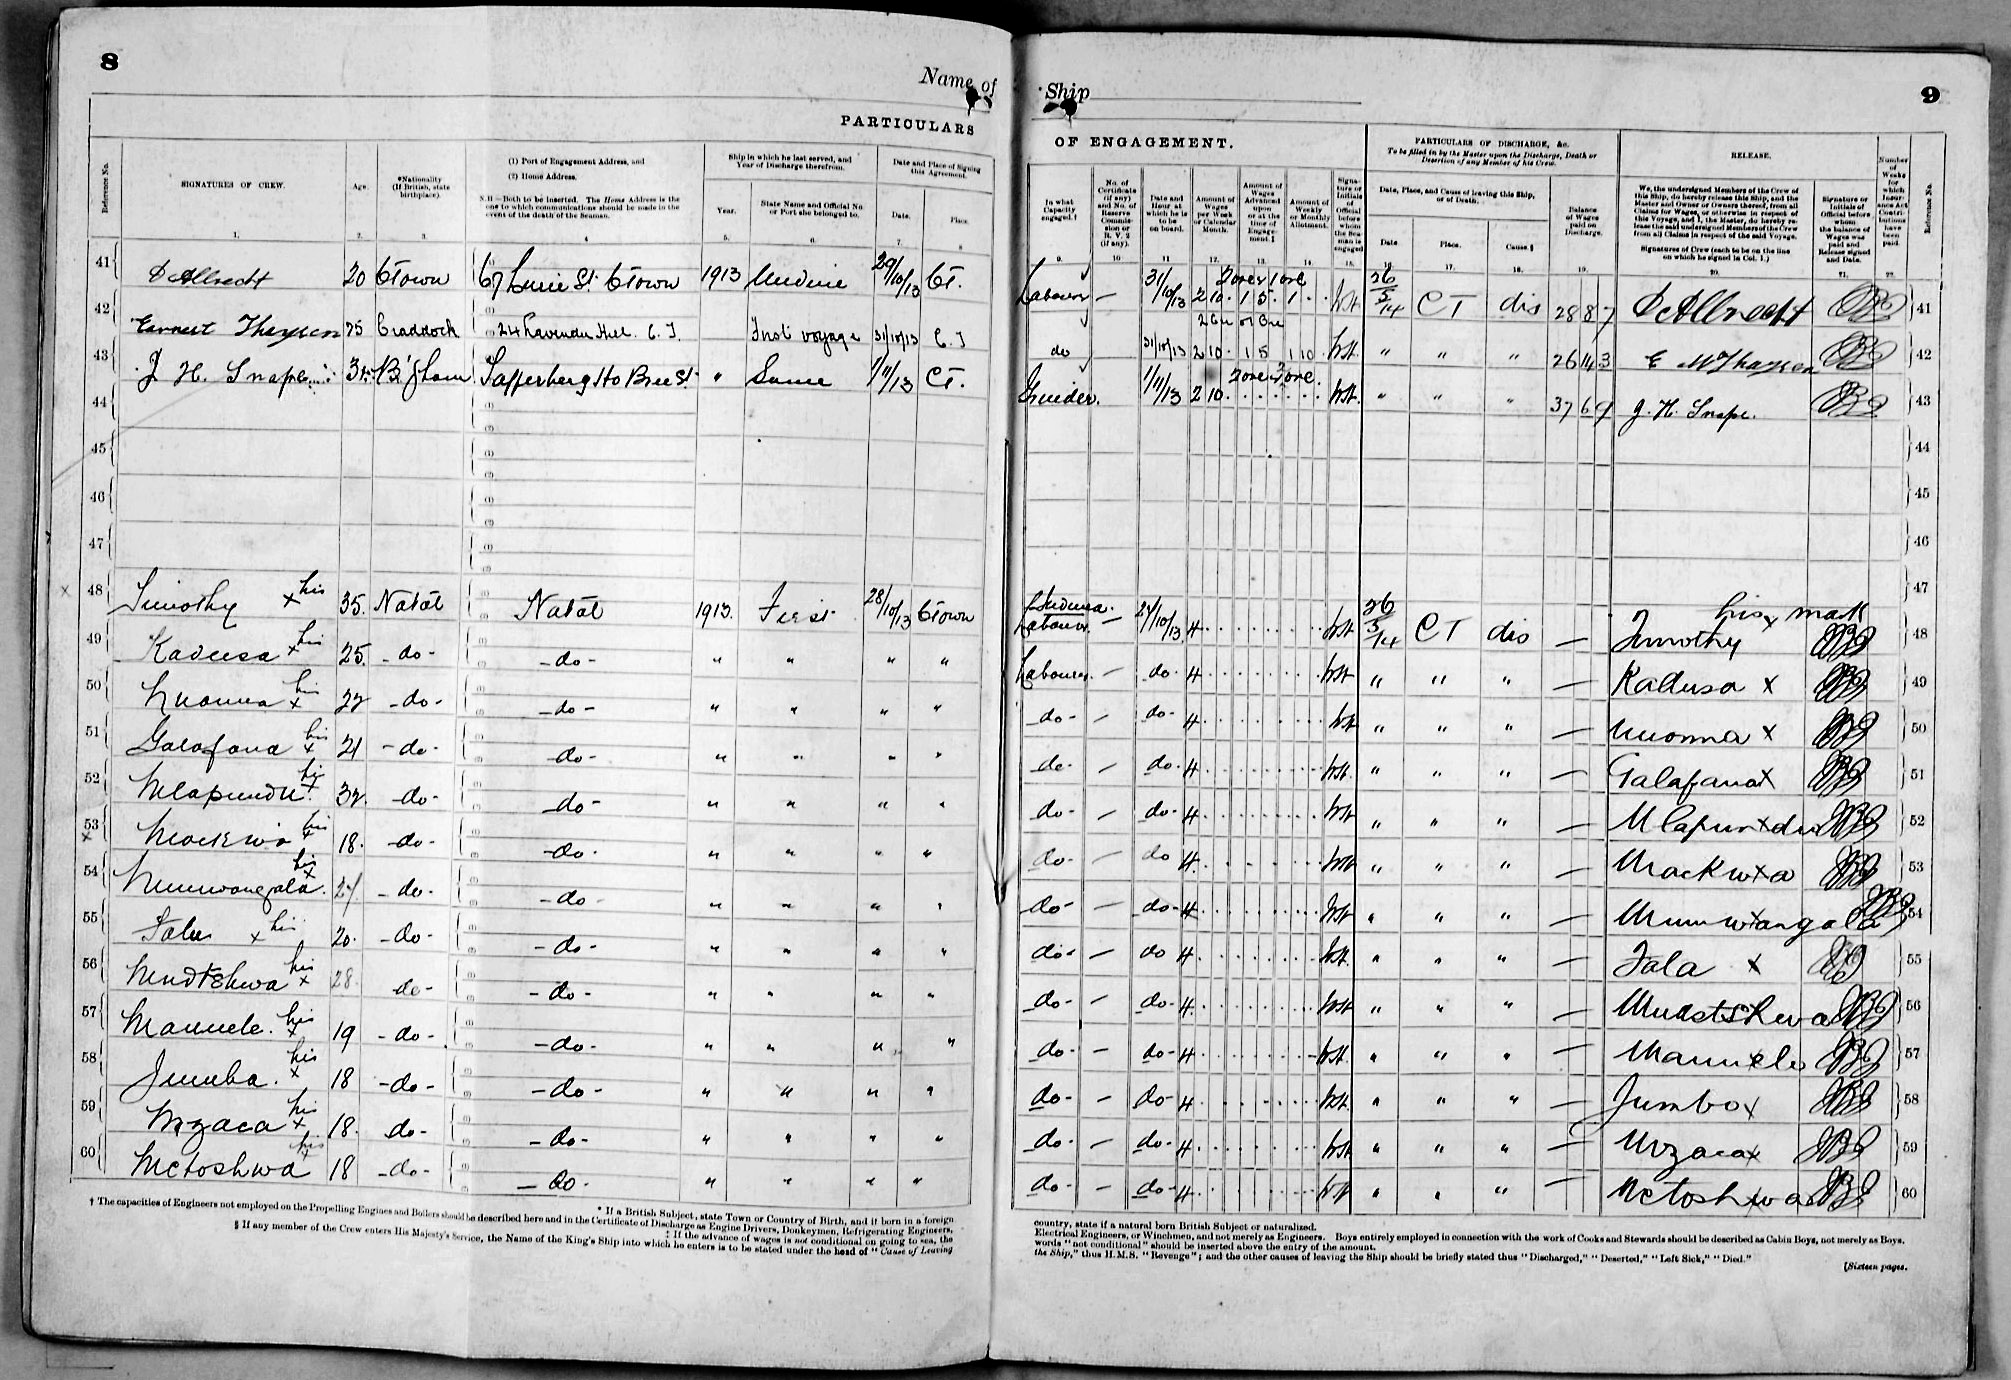 8
Name of
PARTICULARS
Reference No.
SIGNATURES OF CREW.
Age.
*Nationality
(If British, state
birthplace).
(1) Port of Engagement Address, and
(2) Home Address.
N.B—Both to be inserted. The Home Address is the
one to which communications should be made in the
event of the death of the Seaman.
Ship in which he last served, and
Year of Discharge therefrom.
Year.
State Name and Official No.
or Port she belonged to.
Date and Place of Signing
this Agreement.
Date.
Place.
1. 2. 3. 4 5. 6. 7. 8
41 D Albrecht 20 CTown 67 St. CTown 1913 Undine 29/10/13 CT.
42 25 Craddock 24 Lavender Hill C.T. First voyage 31/10/13 C.T
43 J H. Snape 34 B'gham Bree St. " Same 1/11/13 CT.
44
45
46
47
48 Timothy his x 35. Natal Natal 1913. First 28/10/13 CTown
49 Kadusa his x 25. -do- -do- " " " "
50 his x 22 -do- -do- " " " "
51 Galafana his x 21 -do- do- " " " "
52 Mlapundu his x 32. -do- do- " " " "
53 Mackwa his x 18. -do- -do- " " " "
54 Mumwangala his x -do- -do- " " " "
55 Fala x his 20. -do- -do- " " " "
56 his x 28 do- -do- " " " "
57 Manuele. his x 19 -do- -do- " " " "
58 Jumba. his x 18 -do- -do- " " " "
59 Mzaca his x 18. do- -do- " " " "
60 Mctoshwa his x 18 -do- -do- " " " "
* If a British Subject, state Town or Country of Birth, and if born in a foreign
† The capacities of Engineers not employed on the Propelling Engines and Boilers should be described here and in the Certificate of Discharge as Engine Drivers, Donkeymen, Refrigerating Engineers,
‡ If the advance of wages is not conditional on going to sea, the
§ If any member of the Crew enters His Majesty's Service, the Name of the King's Ship into which he enters is to be stated under the head of "Cause of Leaving
Ship
9
OF ENGAGEMENT.
In what
Capacity
engaged.†
No. of
Certificate
(if any)
and No. of
Reserve
Commis-
sion or
R. V. 2
(if any).
Date and
Hour at
which he is
to be
on board.
Amount of
Wages
per Week
or Calendar
Month.
Amount of
Wages
Advanced
upon
or at the
time of
Engage-
ment.‡
Amount of
Weekly
or Monthly
Allotment.
Signa-
ture or
Initials
of
Official
before
whom
the Sea-
man is
engaged
PARTICULARS OF DISCHARGE, &c.
To be filled in by the Master upon the Discharge, Death or
Desertion of any Member of his Crew.
Date, Place, and Cause of leaving this Ship,
or of Death.
Date
Place.
Cause.§
Balance
of Wages
paid on
Discharge.
RELEASE.
We, the undersigned Members of the Crew of
this Ship, do hereby release this Ship, and the
Master and Owner or Owners thereof, from all
Claims for Wages, or otherwise in respect of
this Voyage, and I, the Master, do hereby re-
lease the said undersigned Members of the Crew
from all Claims in respect of the said Voyage.
Signatures of Crew (each to be on the line
on which he signed in Col. 1.)
Signature or
Initials of
Official before
whom
the balance of
Wages was
paid and
Release signed
and Date.
Number
of
Weeks
for
which
Insur-
ance Act
Contri-
butions
have
been
paid.
Reference No.
9. 10 11 12. 13. 14. 15. 16. 17. 18. 19. 20. 21. 22.
Labourer — 31/10/13 2 10. 1 5. 1 26/3/14 CT dis 28 8 7 D Albrecht 41
do 31/10/13 2 10. 1 5 1 10 " " " 26 14 3 42
Grinder. 1/11/13 2 10. " " " 37 6 9 J. H. Snape. 43
44
45
46
47
Labourer. — 27/10/13 4 26/3/14 CT dis — Timothy his x mark 48
Labourer. — do. 4 " " " — Kadusa x 49
do- — do- 4 " " " — x 50
do- — do. 4 " " " — Galafana x 51
do- — do- 4 " " " — Mlapun x du 52
do- — do 4 " " " — Mackw x a 53
do- — do- 4 " " " — Mumw x angala 54
do- — do 4 " " " — Fala x 55
do- — do- 4 " " " — 56
do- — do- 4 " " " — Manu x ele 57
do- — do- 4 " " " — Jumbo x 58
do- — do- 4 " " " — Mzaca x 59
do- — do- 4 " " " — Mctosh x wa 60
country, state if a natural born British Subject or naturalized.
Electrical Engineers, or Winchmen, and not merely as Engineers. Boys entirely employed in connection with the work of Cooks and Stewards should be described as Cabin Boys, not merely as Boys.
words "not conditional" should be inserted above the entry of the amount.
the Ship," thus H.M.S. "Revenge"; and the other causes of leaving the Ship should be briefly stated thus "Discharged," "Deserted," "Left Sick," "Died."
[Sixteen pages.